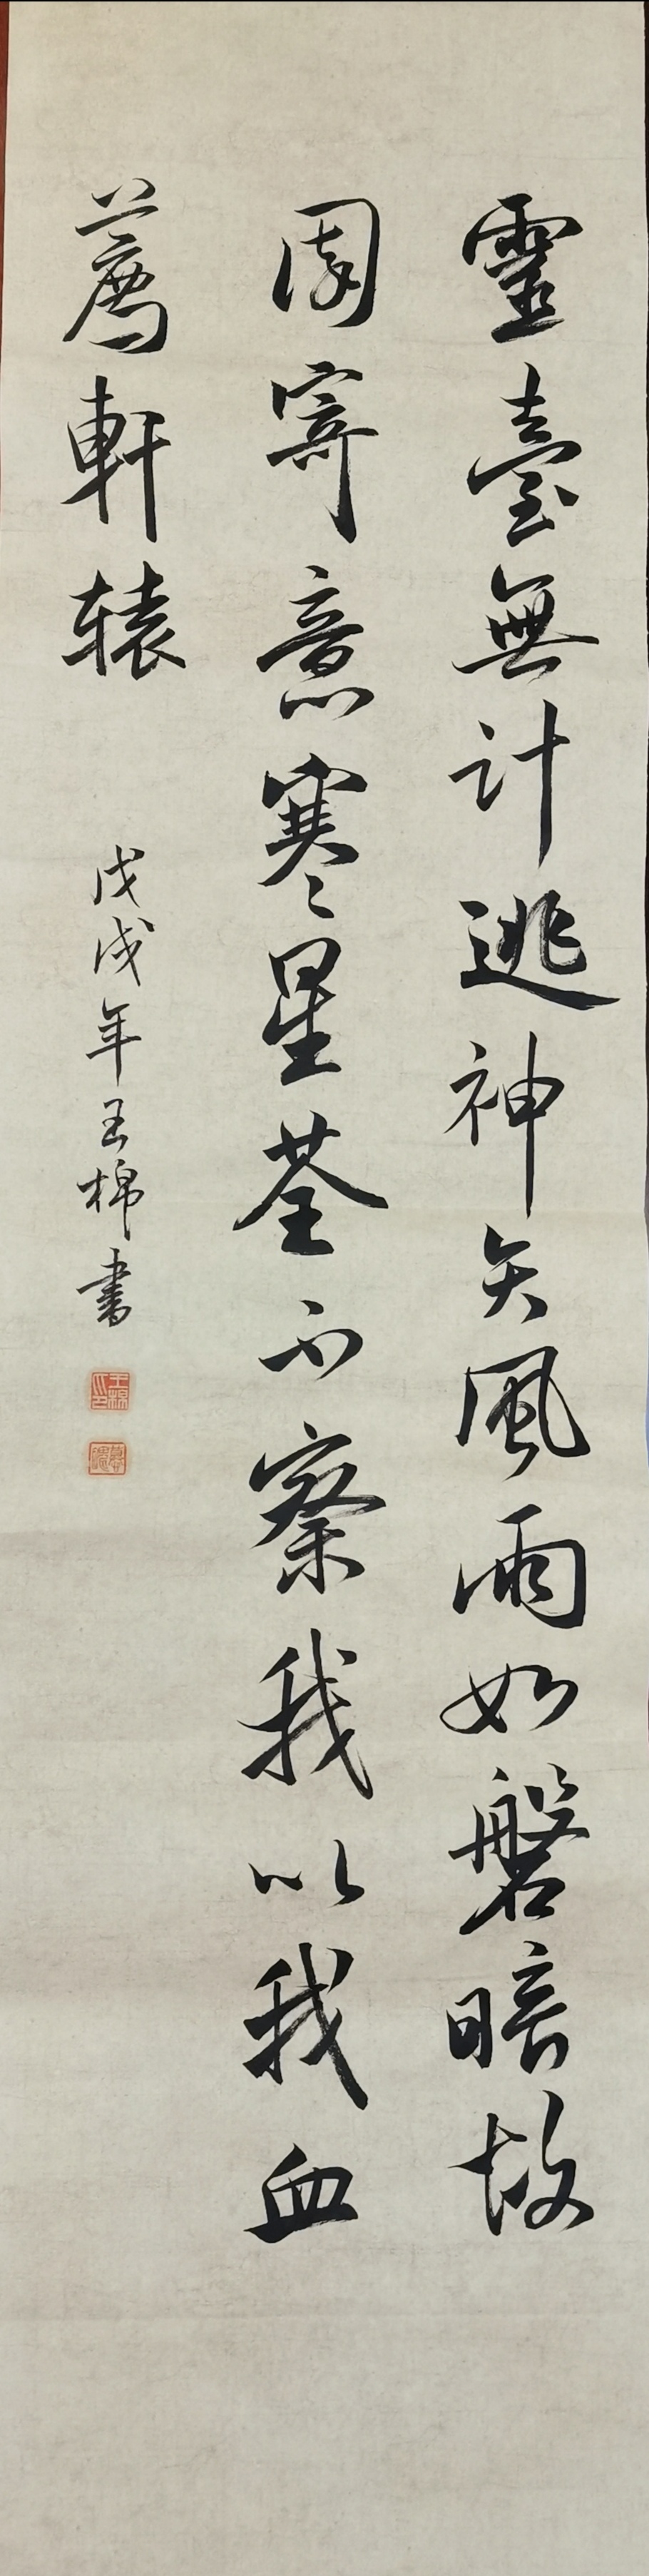 靈臺無計逃神矢風雨如磐暗故
園寄意寒星荃不察我以我血
薦軒辕
戊戌年王棉書